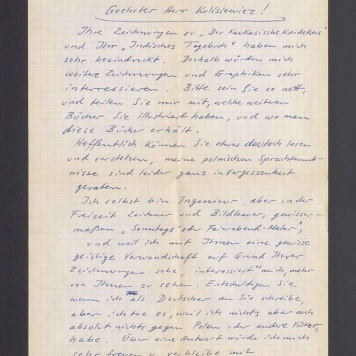 Geehrter Herr Kulisiewicz!
Ihre Zeichnungen zu „Der Kaukasische Kreidekreis"
und Ihr „Indisches Tagebuch" haben mich
sehr beeindruckt. Deshalb würden mich
weitere Zeichnungen und Graphiken sehr
interressieren. Bitte sein Sie so nett,
und teilen Sie mir mit, welche weiteren
Bücher Sie illustriert haben, und wo man
diese Bücher erhält.
Hoffentlich können Sie etwas deutsch lesen
und verstehen, meine polnischen Sprachkennt-
nisse sind leider ganz in Vergessenheit
geraten.
Ich selbst bin Ingenieur, aber in der
Freizeit Zeichner und Bildhauer, gewisser-
maßen „Sonntags" oder Feierabend-Maler",
und weil ich mit Ihnen eine gewisse
geistige Verwandschaft auf Grund Ihrer
Zeichnungen sehe, interessiert mich, mehr
von Ihnen zu sehen. Entschuldigen Sie
wenn ich als Deutscher an Sie schreibe,
aber ich tue es, weil ich nichts aber auch
absolut nichts gegen Polen oder andre Völker
habe. Über eine Antwort würde ich mich
sehr freuen u. verbleibe mit